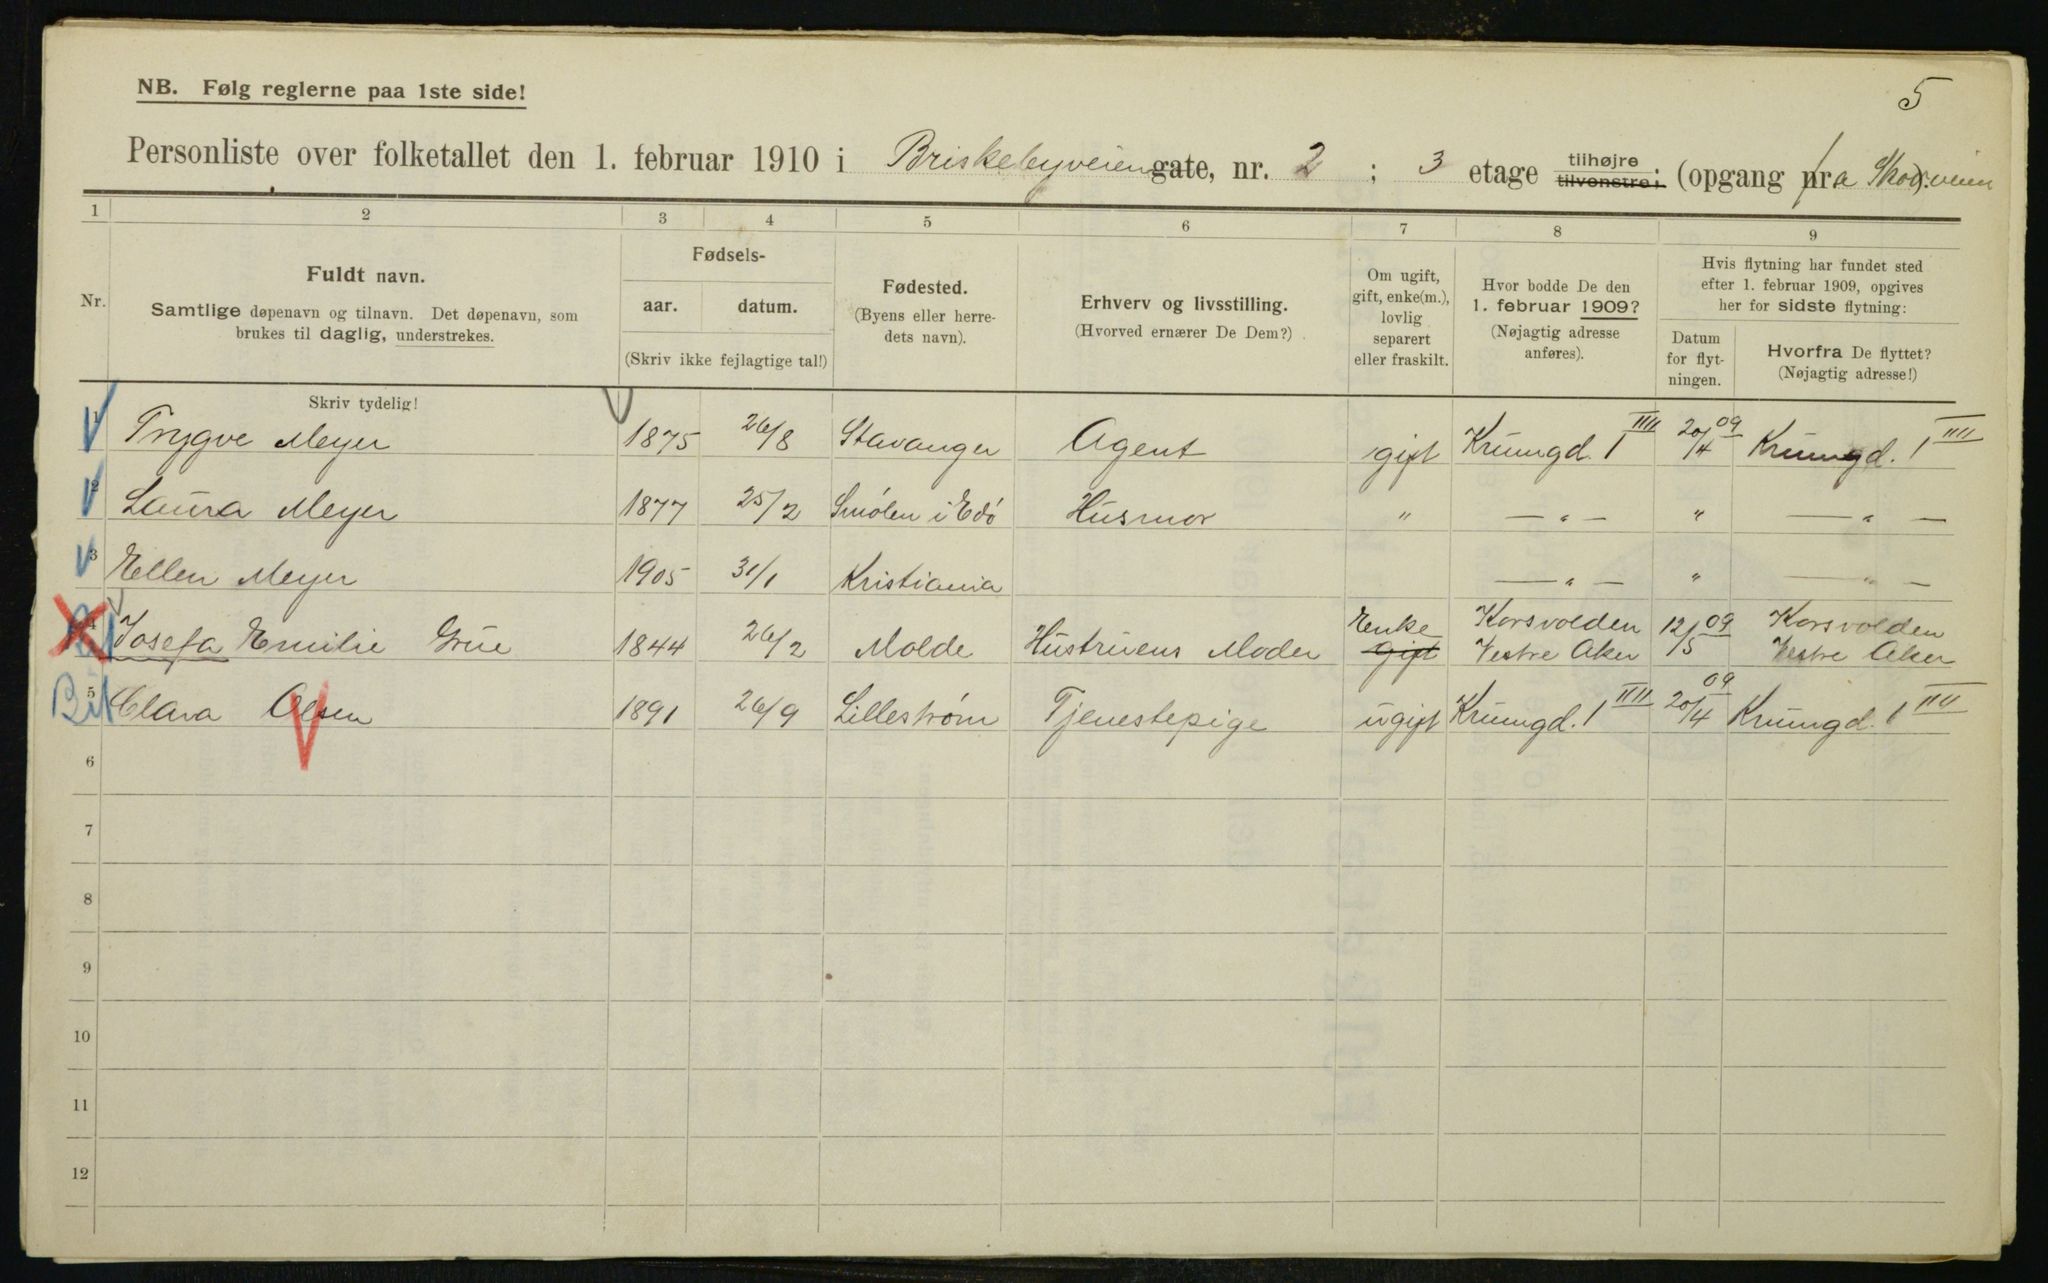 5
NB. Følg reglerne paa 1ste side!
Personliste over folketallet den 1. februar 1910 i Briskebyveien gate, nr. 2 ; 3 etage tilhøjre tilvenstre; (opgang fra Skovveien
1 2 3 4 5 6 7 8 9
Nr.
Fuldt navn.
Samtlige døpenavn og tilnavn. Det døpenavn, som
brukes til daglig, understrekes.
Skriv tydelig!
Fødsels-
aar. datum.
(Skriv ikke fejlagtige tal!)
Fødested.
(Byens eller herre-
dets navn).
Erhverv og livsstilling.
(Hvorved ernærer De Dem?)
Om ugift,
gift, enke(m.),
lovlig
separert
eller fraskilt.
Hvor bodde De den
1. februar 1909?
(Nøjagtig adresse
anføres).
Hvis flytning har fundet sted
efter 1. februar 1909, opgives
her for sidste flytning:
Datum
for flyt-
ningen.
Hvorfra De flyttet?
(Nøjagtig adresse!)
1 Trygve Meyer 1875 26/8 Stavanger Agent gift Krumgd. 1 IIII 20/4 09 Krumgd. 1 IIII
2 Laura Meyer 1877 25/2 Smølen i Edø Husmor " — " — " — " —
3 Ellen Meyer 1905 31/1 Kristiania — " — " — " —
4 Josefa Emilie Grüe 1844 26/2 Molde Hustruens Moder Enke gift Korsvolden Vestre Aker 12/5 09 Korsvolden Vestre Aker
Bit 5 Clara Olsen 1891 26/9 Lillestrøm Tjenestepige ugift Krumgd. 1 IIII 20/4 09 Krumgd. 1 IIII
6
7
8
9
10
11
12